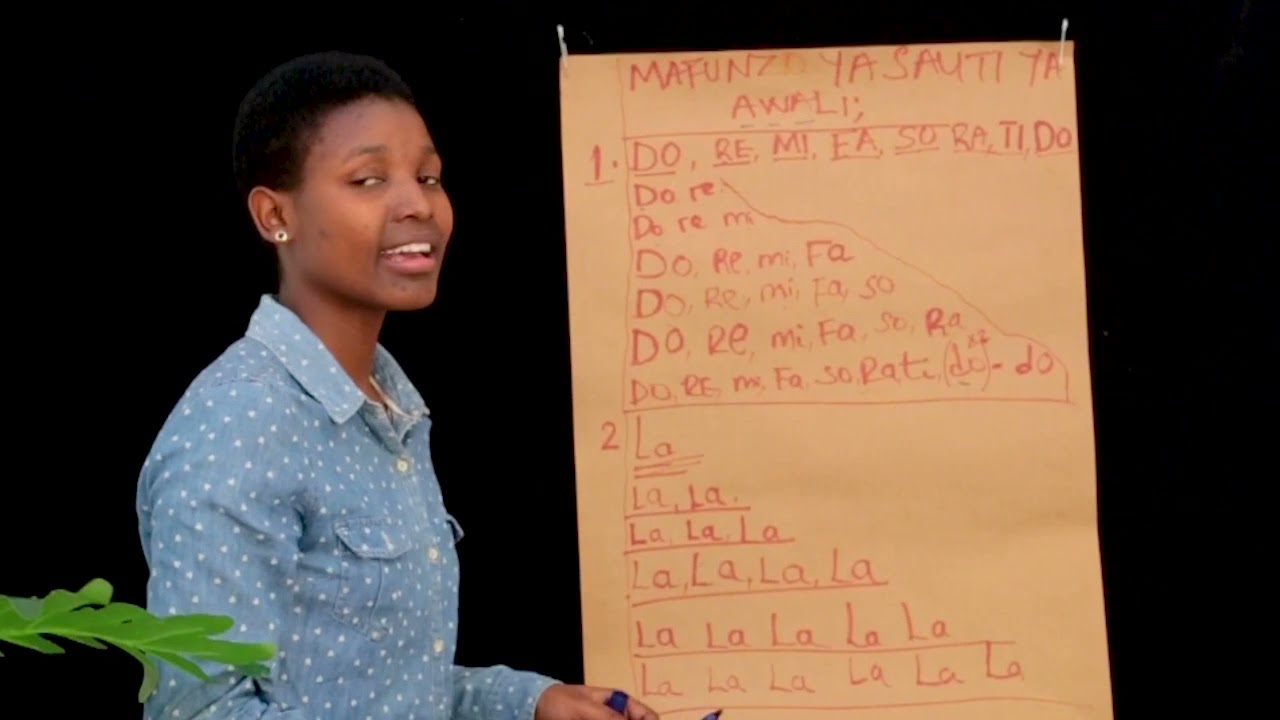 MAFUNZO YA SAUTI YA
AWALI;
1. DO, RE, MI, FA, SO RA, TI, DO
Do re.
Do re mi
Do, Re, mi, Fa
Do, Re, mi, Fa, so
Do, Re, mi, Fa, so, Ra
Do, RE, mi, Fa, so, Ra, ti, (do)x2 - do
2 La
La, La.
La, La, La
La, La, La, La
La La La La La
La La La La La La